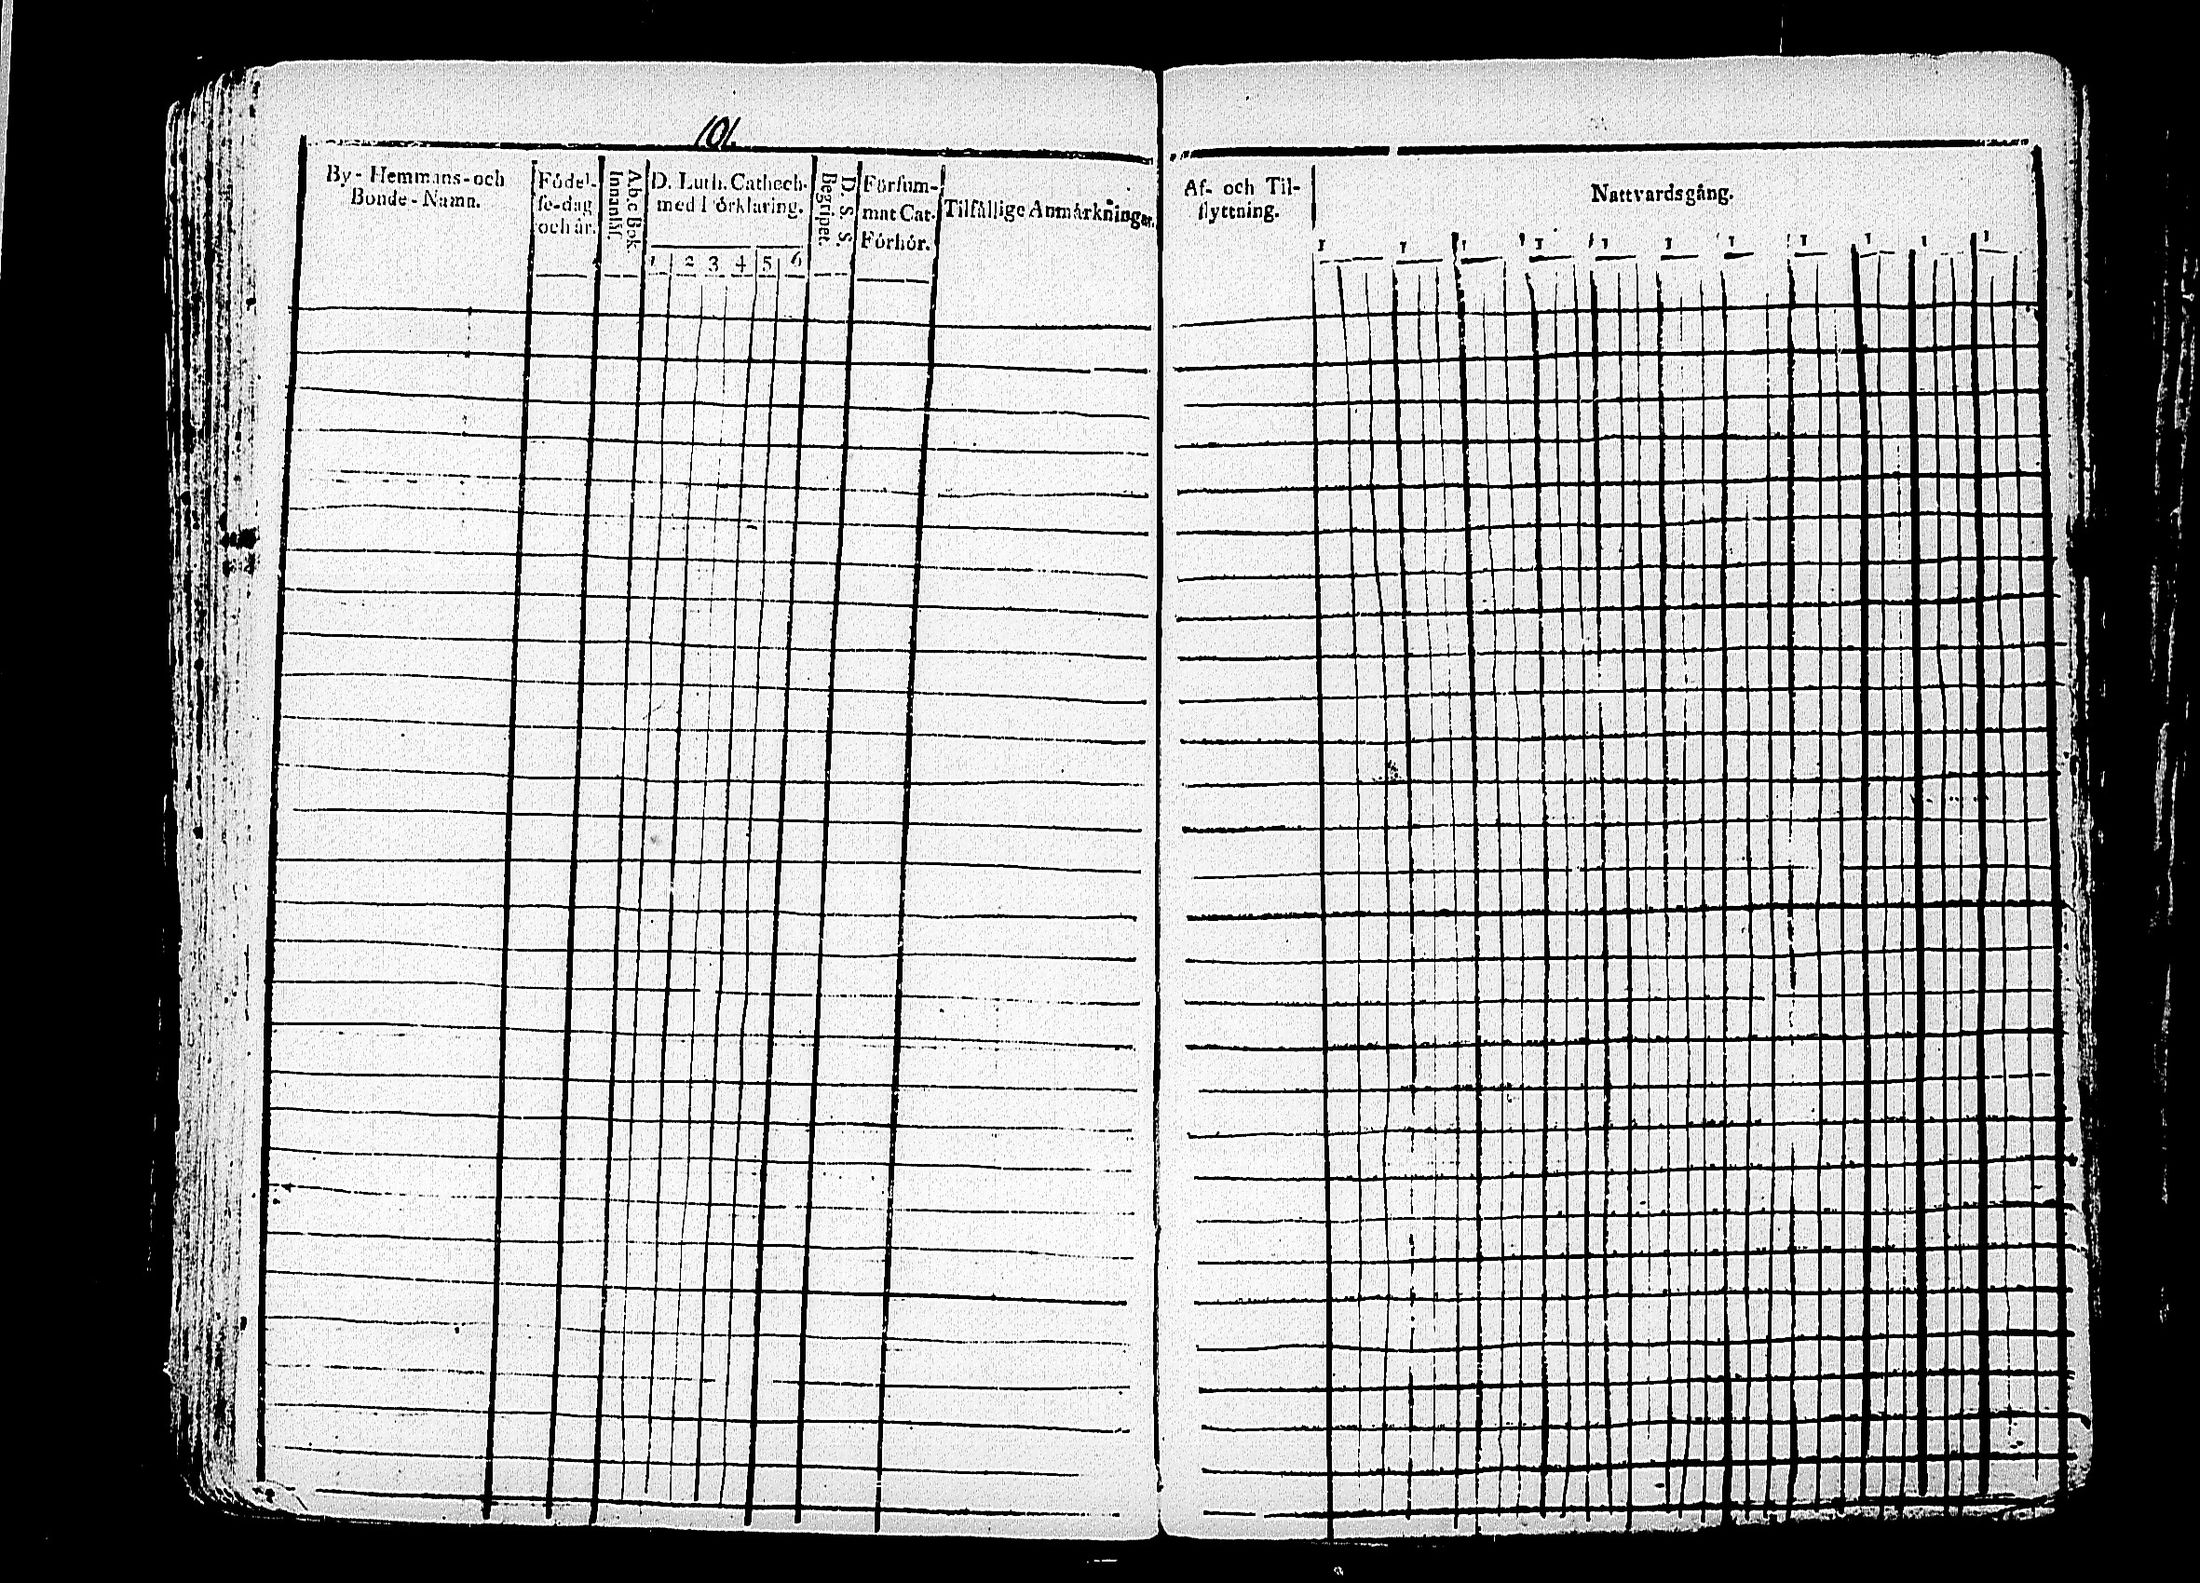 101.
By-Hemmans-och
Bonde-Namn.
Födel-
se-dag
och år.
A.b.c Bok.
Innantil.
D. Luth. Cathech.
med Förklaring.
1 2 3 4 5 6
D. S. S.
Begripet.
Försum-
mat Cat.
Förhör.
Tilfällige Anmärkningar.
Af- och Til-
flyttning.
Nattvardsgång.
1 1 1 1 1 1 1 1 1 1 1